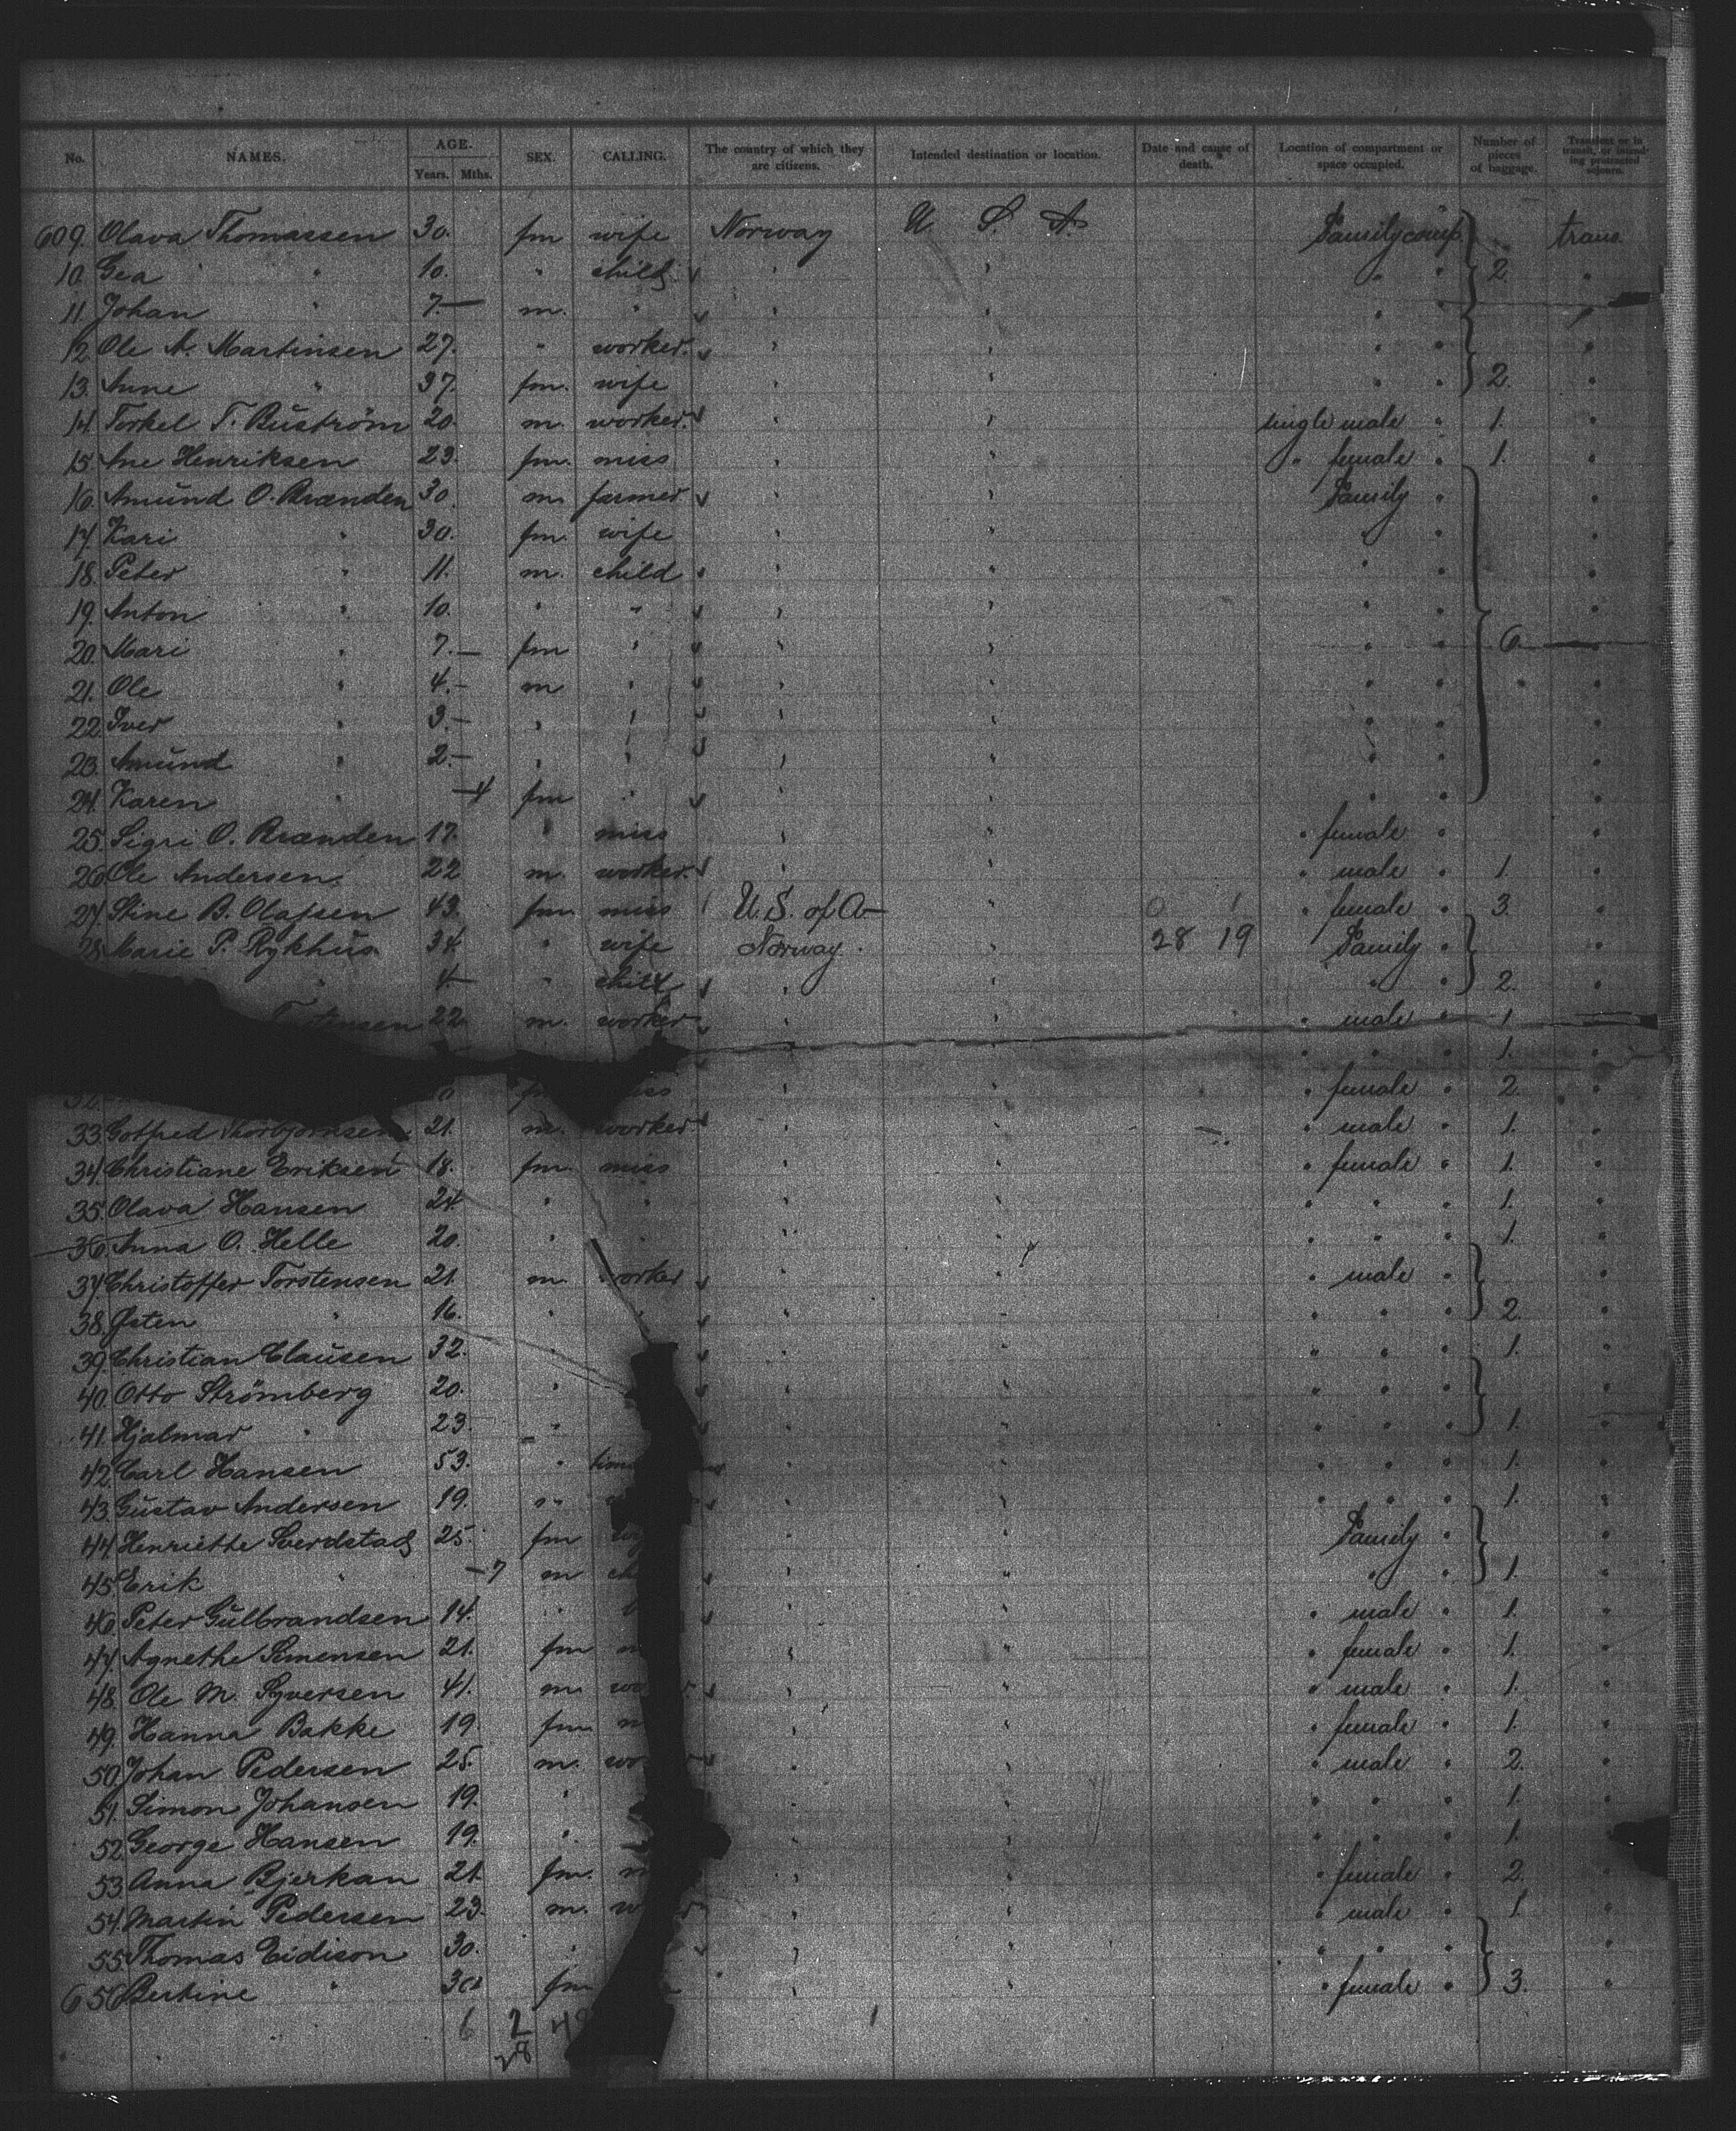 No. NAMES. AGE. Years. Mths. SEX. CALLING. The country of which they are citizens. Intended destination or location. Date and cause of death. Location of compartment or space occupied. Number of pieces of baggage. Transient or in transit, or intending protracted sojourn.
609. Olava Thomassen 30. fm wife Norway U. S. A. Family comp. trans.
10. Gea " 10. " child " " " " 2. "
11. Johan " 7.— m. " " " " " "
12. Ole A. Martinsen 27. " worker. " " " " "
13. Anne " 37. fm. wife " " " " 2. "
14. Torkel T. Buström 20. m. worker. " " single male " 1. "
15. Ane Henriksen 23. fm. miss " " " female " 1. "
16. Amund O. Brænden 30. m. farmer " " Family " "
17. Kari " 30. fm. wife " " " " "
18. Peter " 11. m. child " " " " "
19. Anton " 10. " " " " " " "
20. Mari " 7.— fm " " " " " 6. "
21. Ole " 4.— m " " " " " "
22. Iver " 3.— " " " " " " "
23. Amund " 2.— " " " " " " "
24. Karen " —4 fm " " " " " "
25. Sigri O. Brænden 17. " miss " " " female " "
26. Ole Andersen. 22 m. worker. " " " male " 1. "
27. Stine B. Olafsen 43. fm. miss U. S. of A— " " female " 3. "
28. Marie P. Rykhus 34 " wife Norway. " 28 19 Family " "
" 4— " child " " " " 2. "
22 m. worker " " " male " 1.
" " " " " 1. "
32. " " " female " 2. "
33. Gotfred Thorbjörnsen 21. m. worker " " " male " 1. "
34. Christiane Eriksen 18. fm. miss " " " female " 1. "
35. Olava Hansen 24. " " " " " " " 1. "
36. Anna O. Helle 20. " " " " " " 1. "
37. Christoffer Torstensen 21. m. worker " " " male " "
38. Østen " 16. " " " " " " " 2. "
39. Christian Clausen 32. " " " " " " 1. "
40. Otto Strömberg 20. " " " " " " "
41. Hjalmar " 23. " " " " " " 1. "
42. Carl Hansen 53. " " " " " " 1. "
43. Gustav Andersen 19. " " " " " " 1. "
44. Henriette Sverdstad 25. fm " " Family " "
45. Erik " —7 m ch " " " " 1. "
46. Peter Gulbrandsen 14. " " " " male " 1. "
47. Agnethe Simensen 21. fm m " " " female " 1. "
48. Ole M. Syversen 41. m. wo " " " male " 1. "
49. Hanna Bakke 19. fm m " " " female " 1. "
50. Johan Pedersen 25. m. wor " " " male " 2. "
51. Simon Johansen 19. " " " " " " 1. "
52. George Hansen 19. " " " " " " 1.
53. Anna Bjerkan 21. fm. m " " " female " 2. "
54. Martin Pedersen 23. m. w " " " male " 1. "
55. Thomas Eidison 30. " " " " " " "
656. Bertine " 30 fm " " " female " 3. "
6 2 49
28